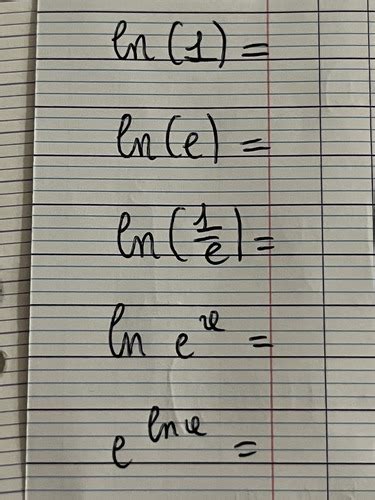 ln (1) =
ln (e) =
ln (1/e) =
ln e^x =
e^ln x =